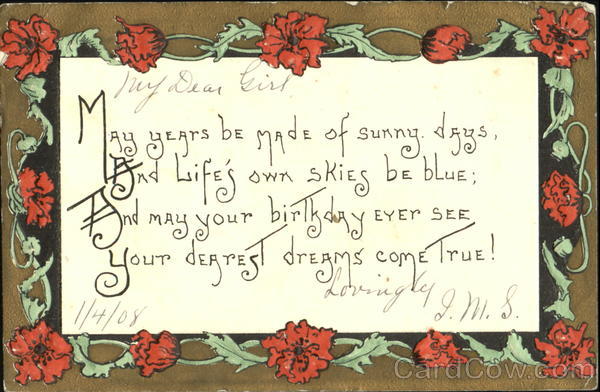 My Dear Girl
May years be made of sunny days,
And Life's own skies be blue;
And may your birthday ever see
Your dearest dreams come true!
Lovingly
1/4/08
J. M. S.
CardCow.com